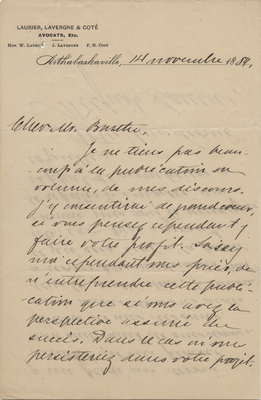 LAURIER, LAVERGNE & COTÉ
AVOCATS, Etc.
Hon. W. Laurier J. Lavergne P. H. Coté
Arthabaskaville, 14 novembre 1889,
Cher Mr. Barthe,
Je ne tiens pas beau-
coup à la publication en
volume, de mes discours.
J'y consentirai de grand coeur,
si vous pensez cependant y
faire votre profit. Laissez
moi cependant vous prier, de
n'entreprendre cette publi-
cation que si vous avez la
perspective assurée du
succès. Dans le cas où vous
persisteriez dans votre projet,